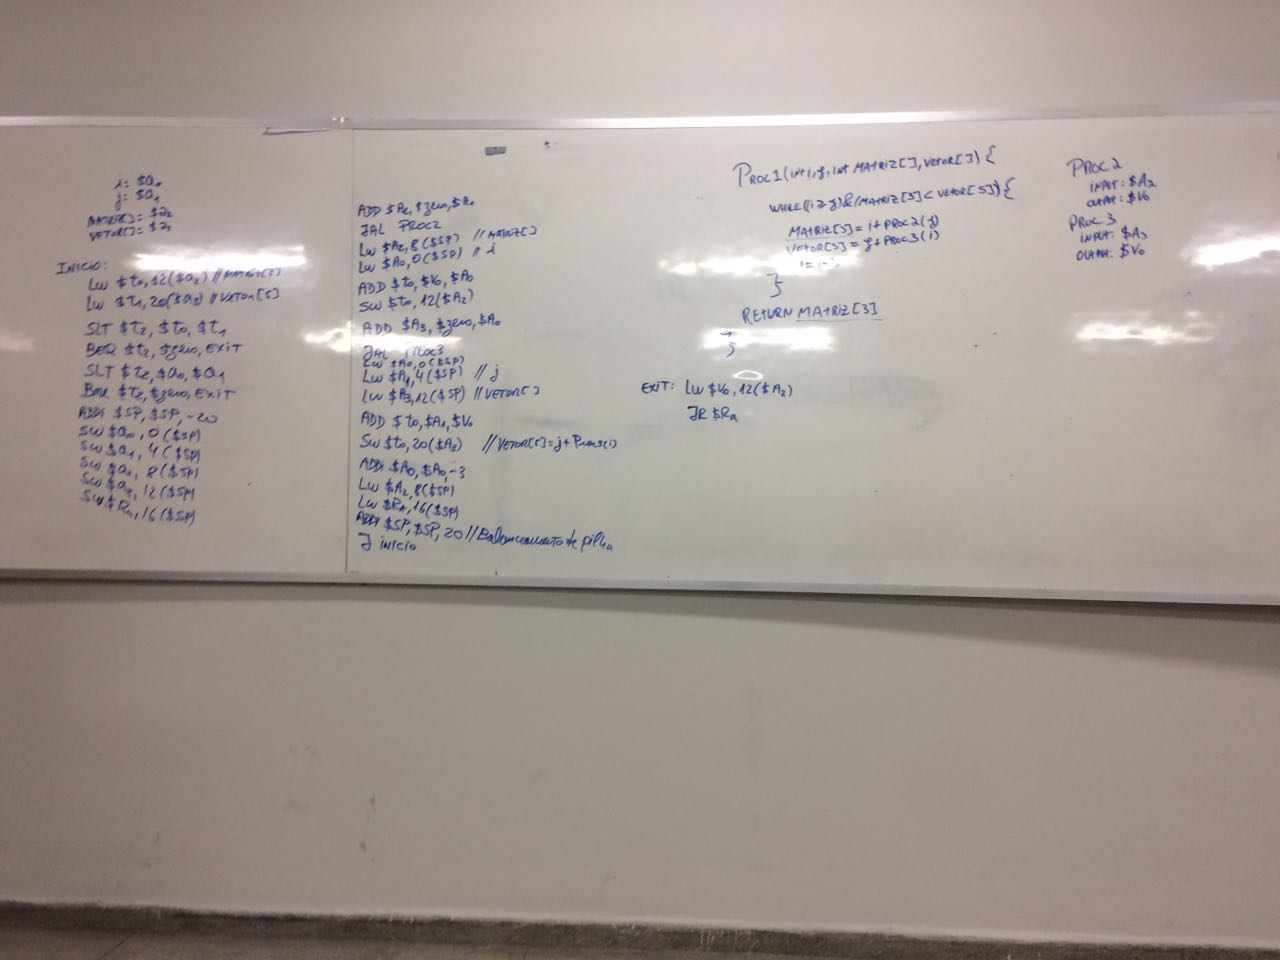 i = $a0
j = $a1
MATRIZ[] = $a2
VETOR[] = $a3
INICIO:
LW $t0, 12($a2) // MATRIZ[3]
LW $t1, 20($a3) // VETOR[5]
SLT $t2, $t0, $t1
BEQ $t2, $zero, EXIT
SLT $t2, $a0, $a1
$t2, $zero, EXIT
ADDi $SP, $SP, -20
SW $a0, 0($SP)
SW $a1, 4($SP)
SW 8($SP)
SW 12($SP)
SW $Ra, 16($SP)
ADD $A2, $zero, $A1
JAL PROC2
LW $A2, 8($SP) // MATRIZ[]
LW $A0, 0($SP) // i
ADD $t0, $V0, $A0
SW $t0, 12($A2)
ADD $A3, $zero, $A0
JAL PROC3
LW $A0, 0($SP)
LW $A1, 4($SP) // j
LW $A3, 12($SP) // VETOR[]
ADD $t0, $A1, $V0
SW $t0, 20($A3) // VETOR[5]=j+PROC3(i)
ADDi $A0, $A0, -3
LW $A2, 8($SP)
LW $RA, 16($SP)
ADDi $SP, $SP, 20 // Balanceamento de pilha
J INICIO
PROC1(int i, j, int MATRIZ[], VETOR[]) {
WHILE((i ≥ j)&(MATRIZ[3] < VETOR[5])){
MATRIZ[3] = i + PROC2(j)
VETOR[5] = j + PROC3(i)
i = i-3
}
RETURN MATRIZ[3]
}
EXIT: LW $V0, 12($A2)
JR $Ra
PROC2
INPUT: $A2
OUTPUT: $V0
PROC3
INPUT: $A3
OUTPUT: $V0